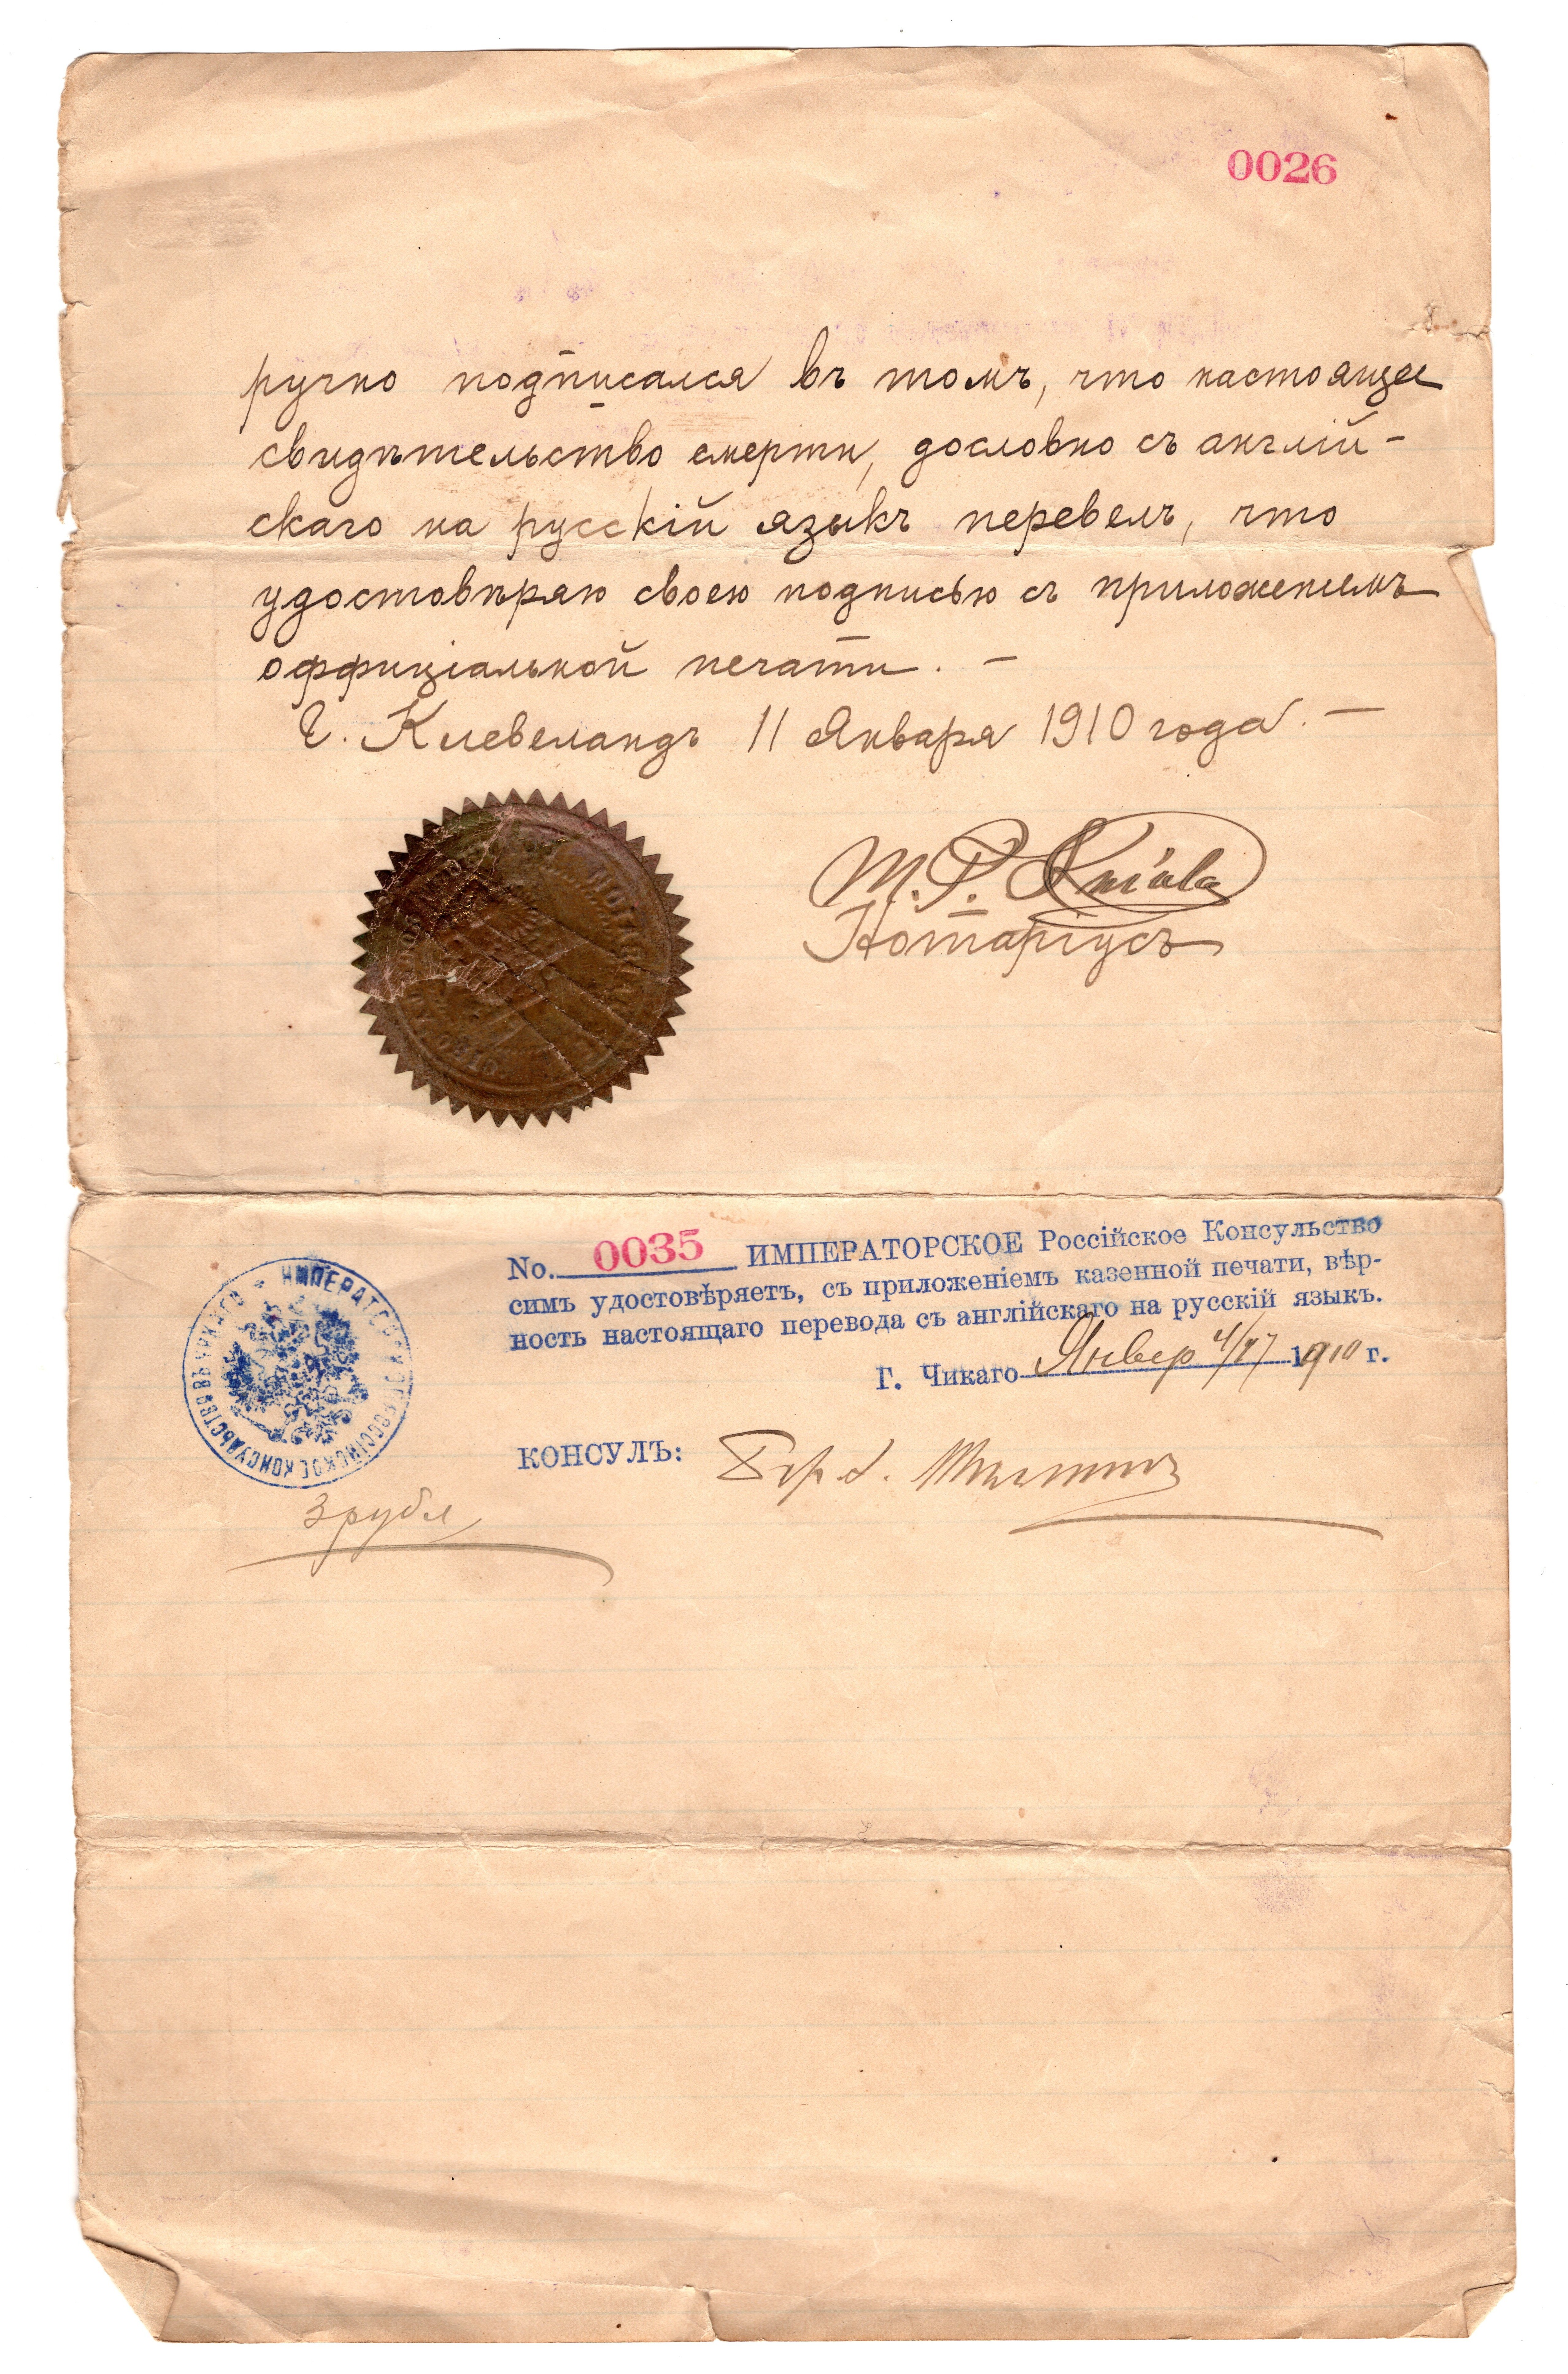 0026
ручно подписался въ томъ, что настоящее
свидѣтельство смерти, дословно съ англій-
скаго на русскій языкъ перевелъ, что
удостовѣряю своею подписью съ приложеніемъ
оффиціальной печати. —
Г. Клевеландъ 11 Января 1910 года. —
Нотаріусъ
No. 0035 ИМПЕРАТОРСКОЕ Россійское Консульство
симъ удостовѣряетъ, съ приложеніемъ казенной печати, вѣр-
ность настоящаго перевода съ англійскаго на русскій языкъ.
Г. Чикаго Январ 4/17 1910 г.
ИМПЕРАТОРСКОЕ РОССІЙСКОЕ КОНСУЛЬСТВО ВЪ ЧИКАГО
КОНСУЛЪ:
3 рубл